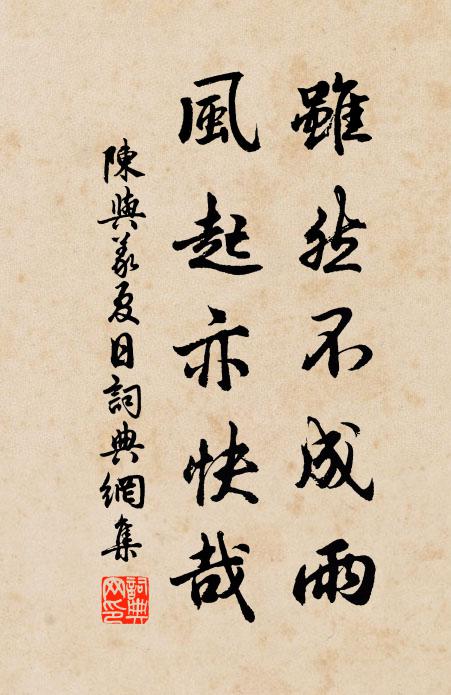 雖然不成雨
風起亦快哉
陳與義夏日詞典網集
詞典網印